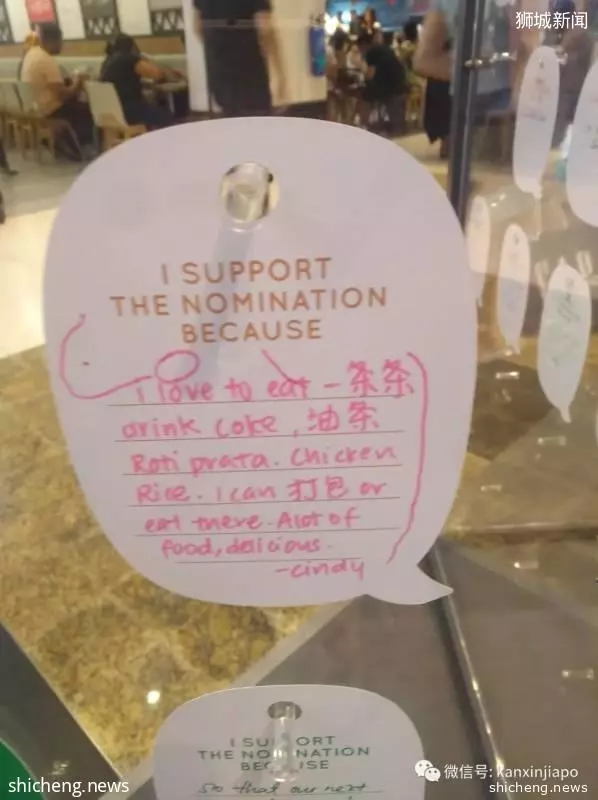 狮城新闻
I SUPPORT
THE NOMINATION
BECAUSE
I love to eat - 条条
drink coke, 油条
Roti prata. Chicken
Rice. I can 打包 or
eat there. A lot of
food, delicious.
-cindy
I SUPPORT
THE NOMINATION
BECAUSE
so that our next
微信号: kanxinjiapo
shicheng.news
shicheng.news